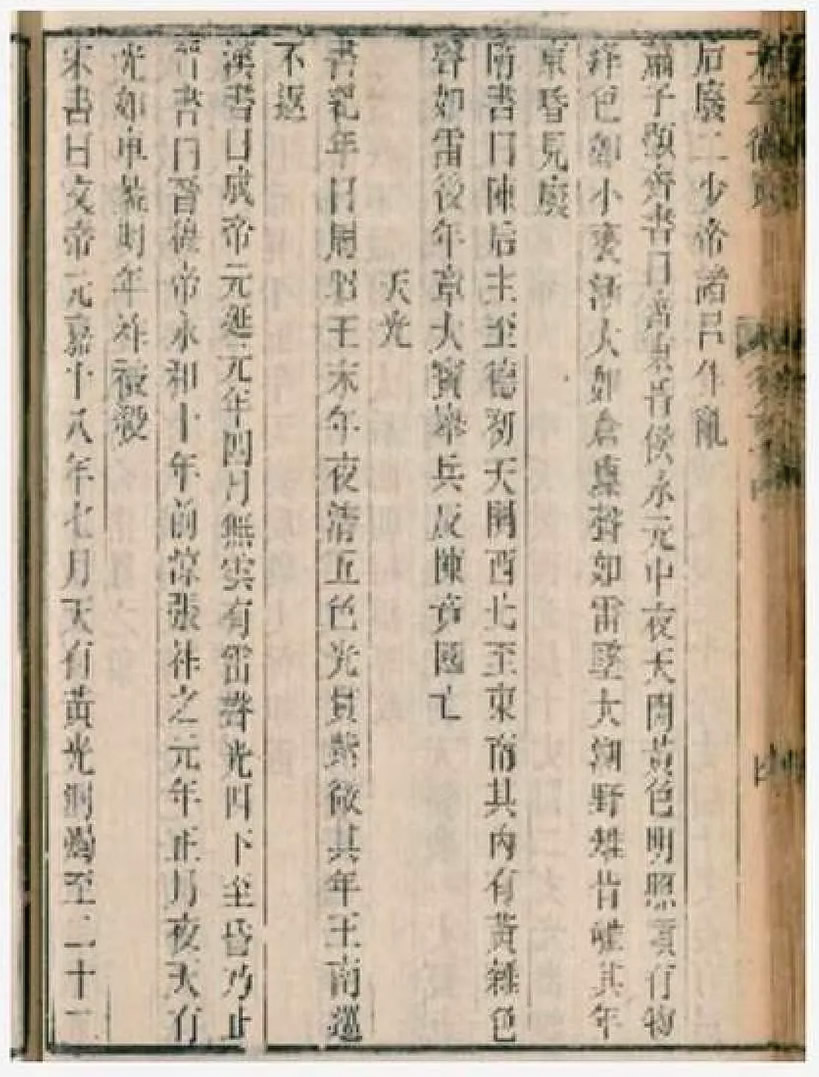 太平御覽
后廢二少帝諸呂作亂
蕭子顯齊書曰齊東昏侯永元中夜天開黃色明照須有物
絳色如小甕漸大如倉廩聲如雷墜大湖野雉皆雊其年
東昏見廢
隋書曰陳后主至德初天開西北至東南其内有黃雜色
聲如雷後年章大寶舉兵反陳竟國亡
天光
書紀年曰周昭王末年夜清五色光貫紫微其年王南巡
不返
漢書曰成帝元延元年四月無雲有雷聲光四下至昏乃止
晉書曰晉穆帝永和十年前涼張祚之元年正月夜天有
光如車蓋明年祚被殺
宋書曰文帝元嘉十八年七月天有黃光洞燭至二十二